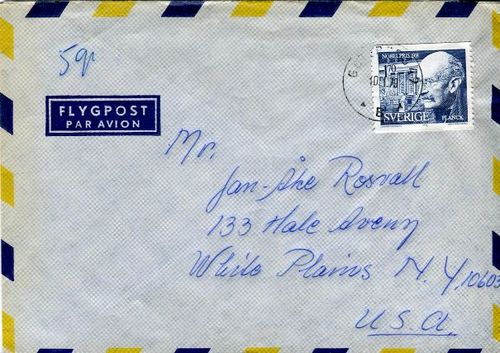 5gr
NOBELPRIS 1918
FLYGPOST
PAR AVION
SVERIGE
PLANCK
Mr.
Jan-Åke Rosvall
133 Hale Aveny
White Plains N.Y. 10603
U.S.A.